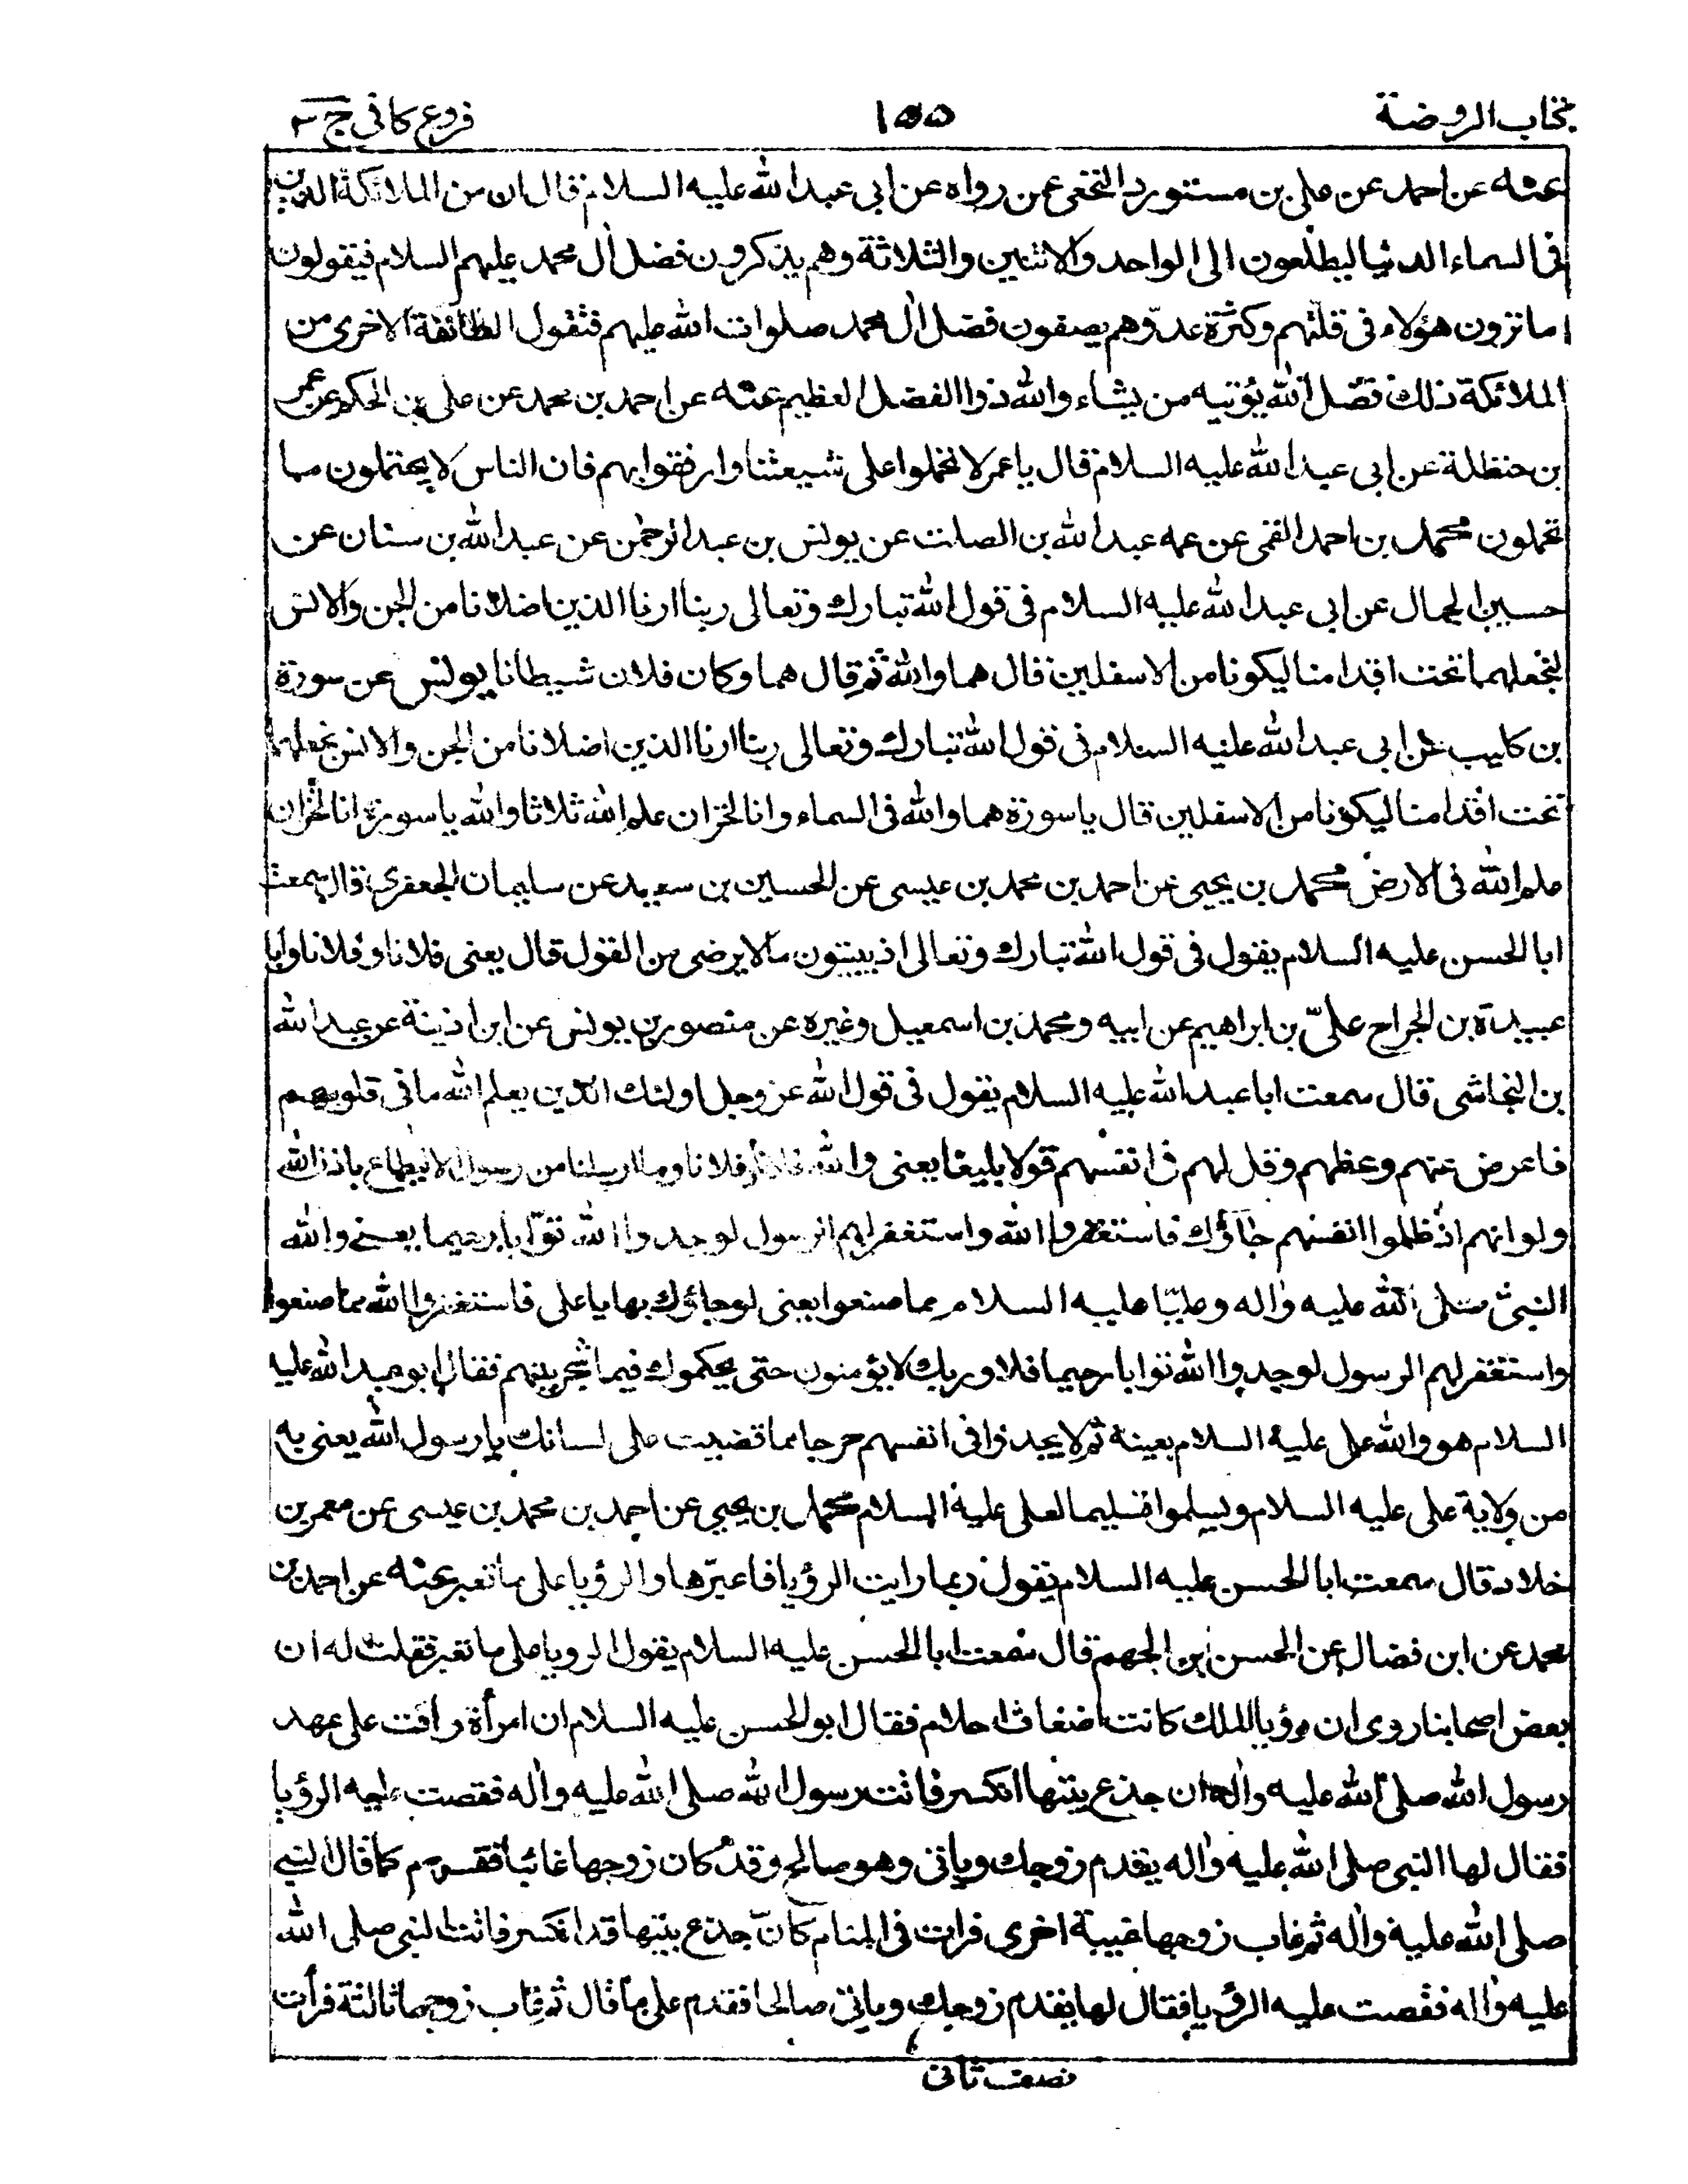 كتاب الروضة ١٥٥ فروع كافى ج ٣
عنه عن احمد عن على بن مستورد النخعى عمن رواه عن ابى عبد الله عليه السلام قال ان من الملائكة الذين
فى السماء الدنيا ليطلعون الى الواحد والاثنين والثلاثة وهم يذكرون فضل آل محمد عليهم السلام فيقولون
اما ترون هؤلاء فى قلتهم وكثرة عدوهم يصفون فضل آل محمد صلوات الله عليهم فتقول الطائفة الاخرى من
الملائكة ذلك فضل الله يؤتيه من يشاء والله ذوا الفضل العظيم عنه عن احمد بن محمد عن على بن الحكم عن عمر
بن حنظلة عن ابى عبد الله عليه السلام قال يا عمر لا تحملوا على شيعتنا وارفقوا بهم فان الناس لا يحتملون ما
تحملون محمد بن احمد القمى عن عمه عبد الله بن الصلت عن يونس بن عبد الرحمن عن عبد الله بن سنان عن
حسين الجمال عن ابى عبد الله عليه السلام فى قول الله تبارك وتعالى ربنا ارنا الذين اضلانا من الجن والانس
نجعلهما تحت اقدامنا ليكونا من الاسفلين قال هما والله ثم قال هما وكان فلان شيطانا يونس عن سورة
بن كليب عن ابى عبد الله عليه السلام فى قول الله تبارك وتعالى ربنا ارنا الذين اضلانا من الجن والانس نجعلهما
تحت اقدامنا ليكونا من الاسفلين قال يا سورة هما والله فى السماء وانا لخزان علم الله ثلاثا والله يا سورة انا لخزان
علم الله فى الارض محمد بن يحيى عن احمد بن محمد بن عيسى عن الحسين بن سعيد عن سليمان الجعفرى قال سمعت
ابا الحسن عليه السلام يقول فى قول الله تبارك وتعالى اذ يبيتون ما لا يرضى من القول قال يعنى فلانا وفلانا وابا
عبيدة بن الجراح علىّ بن ابراهيم عن ابيه ومحمد بن اسمعيل وغيره عن منصور بن يونس عن ابن اذينة عن عبد الله
بن النجاشى قال سمعت ابا عبد الله عليه السلام يقول فى قول الله عز وجل اولئك الذين يعلم الله ما فى قلوبهم
فاعرض عنهم وعظهم وقل لهم فى انفسهم قولا بليغا يعنى والله فلانا وفلانا وما ارسلنا من رسول الا ليطاع باذن الله
ولو انهم اذ ظلموا انفسهم جاؤك فاستغفروا الله واستغفر لهم الرسول لوجدوا الله توّابا رحيما يعنى والله
النبى صلى الله عليه وآله وعليّا عليه السلام مما صنعوا يعنى لو جاؤك بها يا على فاستغفروا الله مما صنعوا
واستغفر لهم الرسول لوجدوا الله توابا رحيما فلا وربك لا يؤمنون حتى يحكموك فيما شجر بينهم فقال ابو عبد الله عليه
السلام هو والله على عليه السلام بعينه ثم لا يجدوا فى انفسهم حرجا مما قضيت على لسانك يا رسول الله يعنى به
من ولاية على عليه السلام ويسلموا تسليما لعلى عليه السلام محمد بن يحيى عن احمد بن محمد بن عيسى عن معمر بن
خلاد قال سمعت ابا الحسن عليه السلام يقول ربما رايت الرؤيا فاعبّرها والرؤيا على ما تعبر عنه عن احمد بن
محمد عن ابن فضال عن الحسن ابن الجهم قال سمعت ابا الحسن عليه السلام يقول الرويا على ما تعبر فقلت له ان
بعض اصحابنا روى ان رؤيا الملك كانت اضغاث احلام فقال ابو الحسن عليه السلام ان امرأة رات على عهد
رسول الله صلى الله عليه وآله ان جذع بيتها انكسر فاتت رسول الله صلى الله عليه وآله فقصت عليه الرؤيا
فقال لها النبى صلى الله عليه وآله يقدم زوجك وياتى وهو صالح وقد كان زوجها غائبا فقدم كما قال النبى
صلى الله عليه وآله ثم غاب زوجها غيبة اخرى فرات فى المنام كانّ جذع بيتها قد انكسر فاتت النبى صلى الله
عليه وآله فقصت عليه الرؤيا فقال لها يقدم زوجك وياتى صالحا فقدم على ما قال ثم غاب زوجها ثالثة فرأت
نصف ثانى